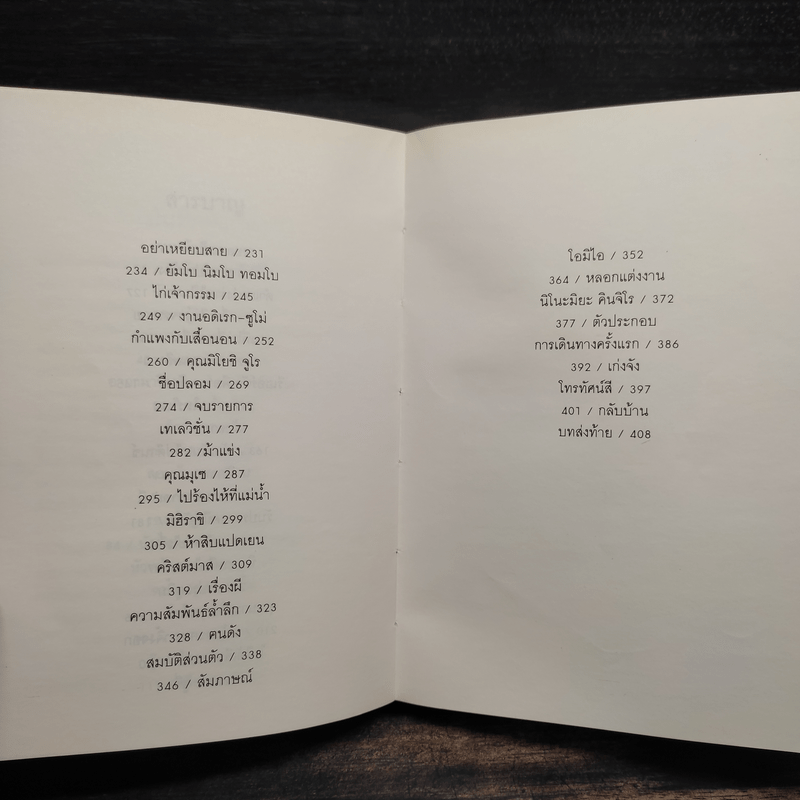 อย่าเหยียบสาย / 231
234 / ยัมโบ นิมโบ ทอมโบ
ไก่เจ้ากรรม / 245
249 / งานอดิเรก-ซูโม่
กำแพงกับเสื้อนอน / 252
260 / คุณมิโยชิ จูโร
ชื่อปลอม / 269
274 / จบรายการ
เทเลวิชั่น / 277
282 /ม้าแข่ง
คุณมุเซ / 287
295 / ไปร้องไห้ที่แม่น้ำ
มิฮิราขิ / 299
305 / ห้าสิบแปดเยน
คริสต์มาส / 309
319 / เรื่องผี
ความสัมพันธ์ล้ำลึก / 323
328 / คนดัง
สมบัติส่วนตัว / 338
346 / สัมภาษณ์
โอมิไอ / 352
364 / หลอกแต่งงาน
นิโนะมิยะ คินจิโร / 372
377 / ตัวประกอบ
การเดินทางครั้งแรก / 386
392 / เก่งจัง
โทรทัศน์สี / 397
401 / กลับบ้าน
บทส่งท้าย / 408